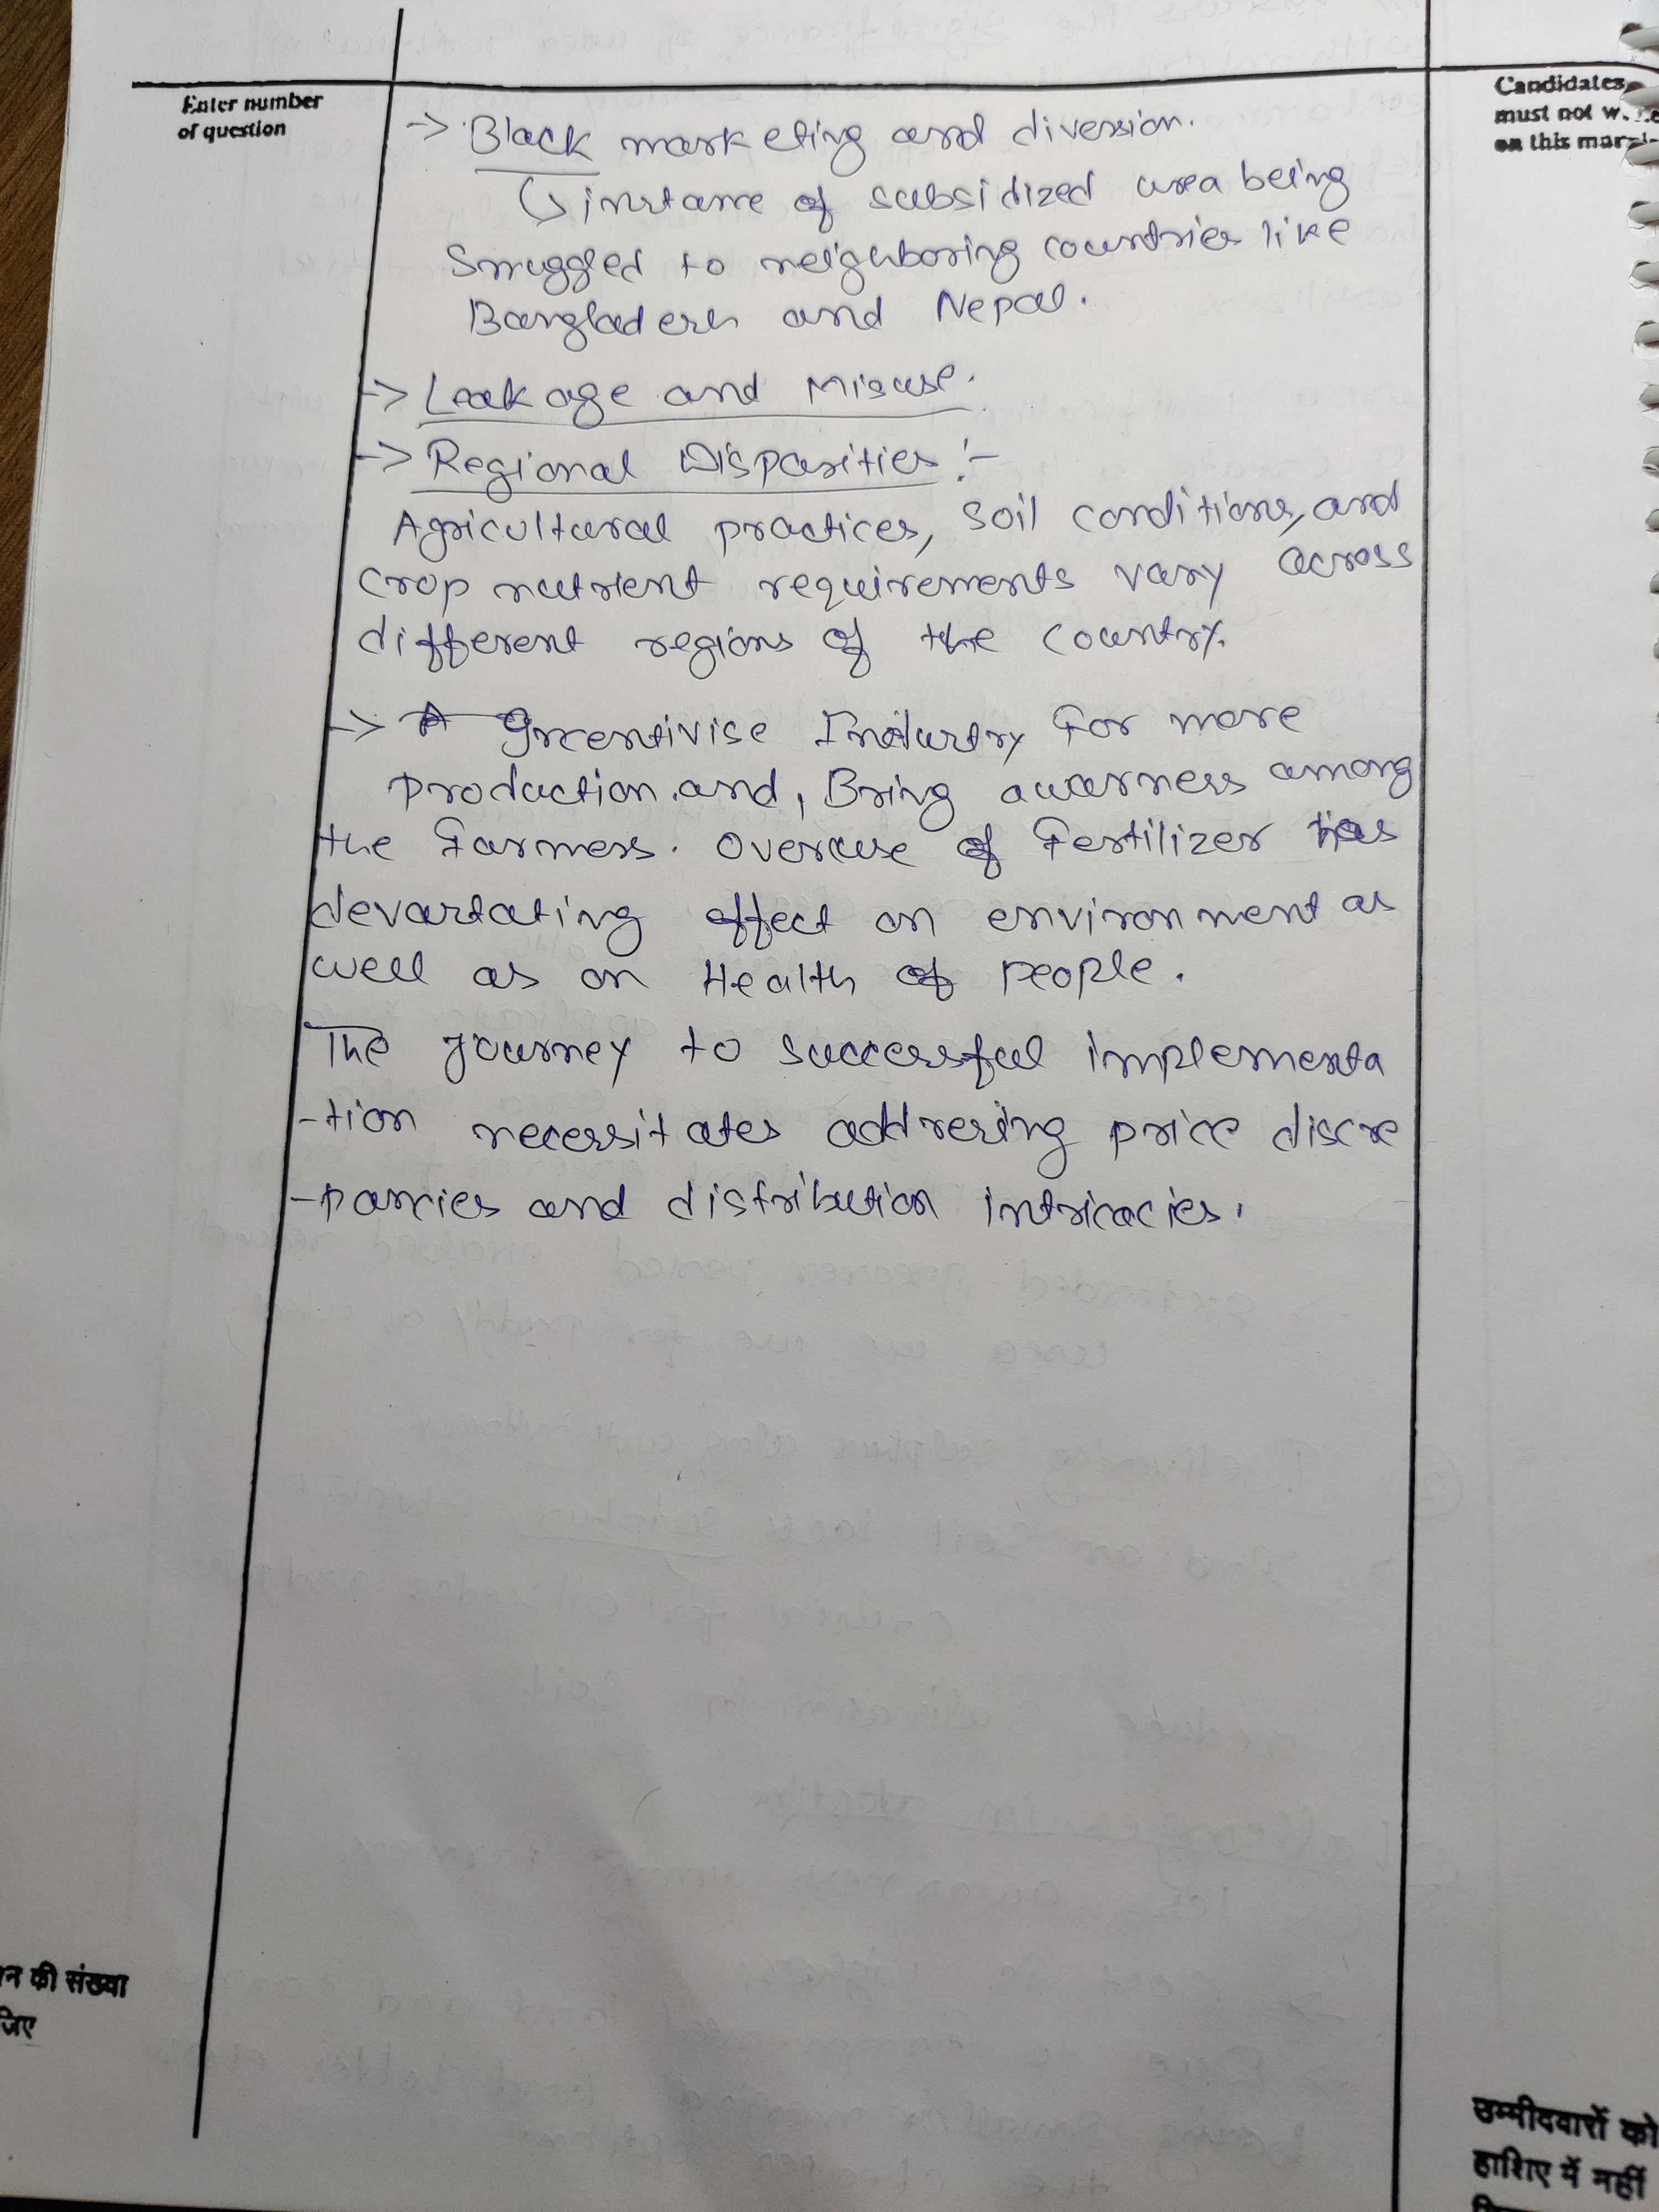 Enter number
of question
Candidates
must not w
on this mar
→ Black marketing and diversion.
↳ instance of subsidized urea being
smuggled to neighboring countries like
Bangladesh and Nepal.
→ Leakage and Misuse.
→ Regional Disparities :-
Agricultural practices, soil conditions, and
crop nutrient requirements vary across
different regions of the country.
→ Incentivise Industry for more
production and, Bring awarness among
the farmers. Overuse of Fertilizer has
devastating effect on environment as
well as on Health of people.
The journey to successful implementa
-tion necessitates addresing price discre
-pancies and distribution intricacies.
न की संख्या
जिए
उम्मीदवारों को
हाशिए में नहीं